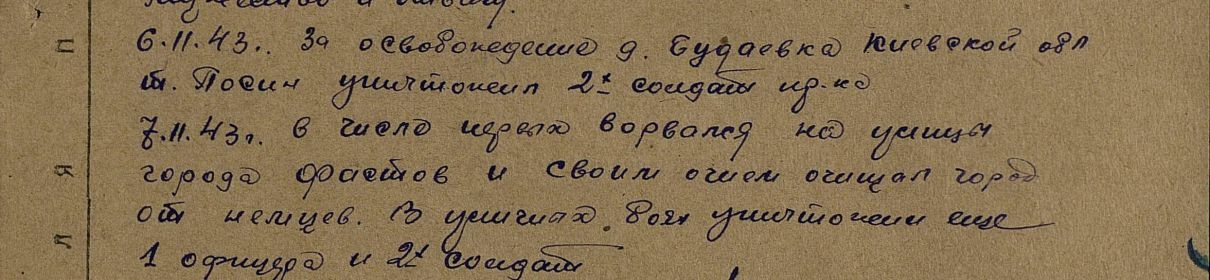 мужество и отвагу.
6.11.43г. За освобождение д. Будаевка Киевской обл
т. Посин уничтожил 2х солдат пр-ка
7.11.43г. в числе первых ворвался на улицы
города Фастов и своим огнем очищал город
от немцев. В уличных боях уничтожил еще
1 офицера и 2х солдат
П
Я
Л